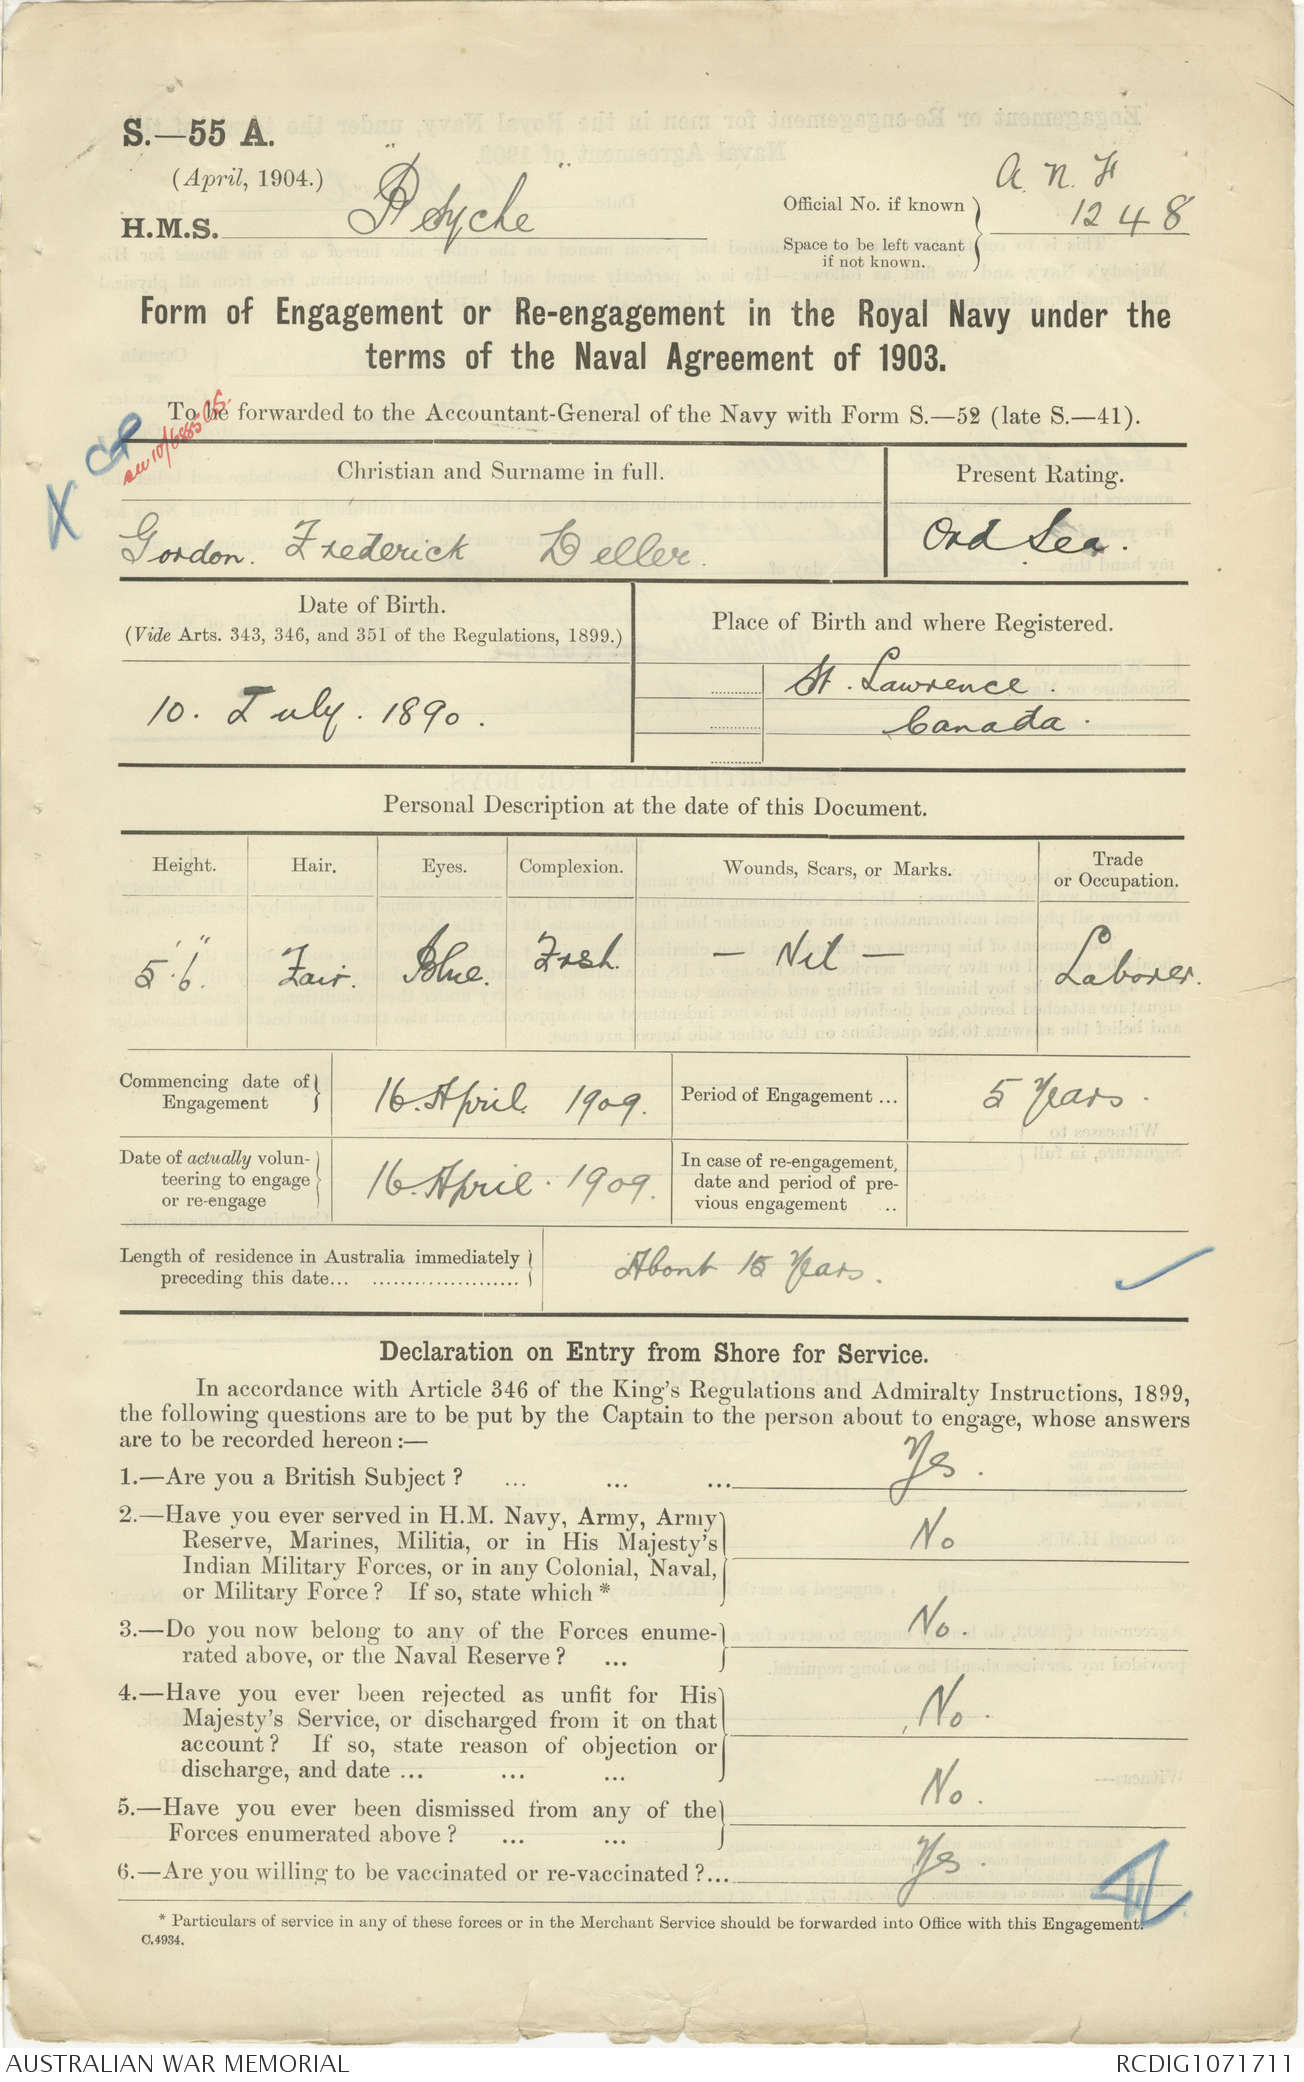 S.—55 A.
(April, 1904.)
A. N. F
H.M.S. "Psyche"
Official No. if known
1248
Space to be left vacant
if not known.
Form of Engagement or Re-engagement in the Royal Navy under the
terms of the Naval Agreement of 1903.
To be forwarded to the Accountant-General of the Navy with Form S.—52 (late S.—41).
X
Christian and Surname in full.
Present Rating.
Gordon. Frederick Deller.
Ord Sea.
Date of Birth.
(Vide Arts. 343, 346, and 351 of the Regulations, 1899.)
Place of Birth and where Registered.
10. July. 1890.
St. Lawrence.
Canada.
Personal Description at the date of this Document.
Height.
Hair.
Eyes.
Complexion.
Wounds, Scars, or Marks.
Trade
or Occupation.
5' 6".
Fair.
Blue.
Frsh.
— Nil —
Laborer.
Commencing date of
Engagement
16. April. 1909.
Period of Engagement ...
5 Years.
Date of actually volun-
teering to engage
or re-engage
16. April. 1909.
In case of re-engagement,
date and period of pre-
vious engagement ..
Length of residence in Australia immediately
preceding this date... ......................
About 15 Years.
Declaration on Entry from Shore for Service.
In accordance with Article 346 of the King's Regulations and Admiralty Instructions, 1899,
the following questions are to be put by the Captain to the person about to engage, whose answers
are to be recorded hereon:—
1.—Are you a British Subject? ... ... ... Yes.
2.—Have you ever served in H.M. Navy, Army, Army
Reserve, Marines, Militia, or in His Majesty's
Indian Military Forces, or in any Colonial, Naval,
or Military Force? If so, state which *
No
3.—Do you now belong to any of the Forces enume-
rated above, or the Naval Reserve? ...
No.
4.—Have you ever been rejected as unfit for His
Majesty's Service, or discharged from it on that
account? If so, state reason of objection or
discharge, and date ... ... ...
No.
5.—Have you ever been dismissed from any of the
Forces enumerated above? ... ...
No.
6.—Are you willing to be vaccinated or re-vaccinated?... Yes.
* Particulars of service in any of these forces or in the Merchant Service should be forwarded into Office with this Engagement.
C.4934.
AUSTRALIAN WAR MEMORIAL
RCDIG1071711